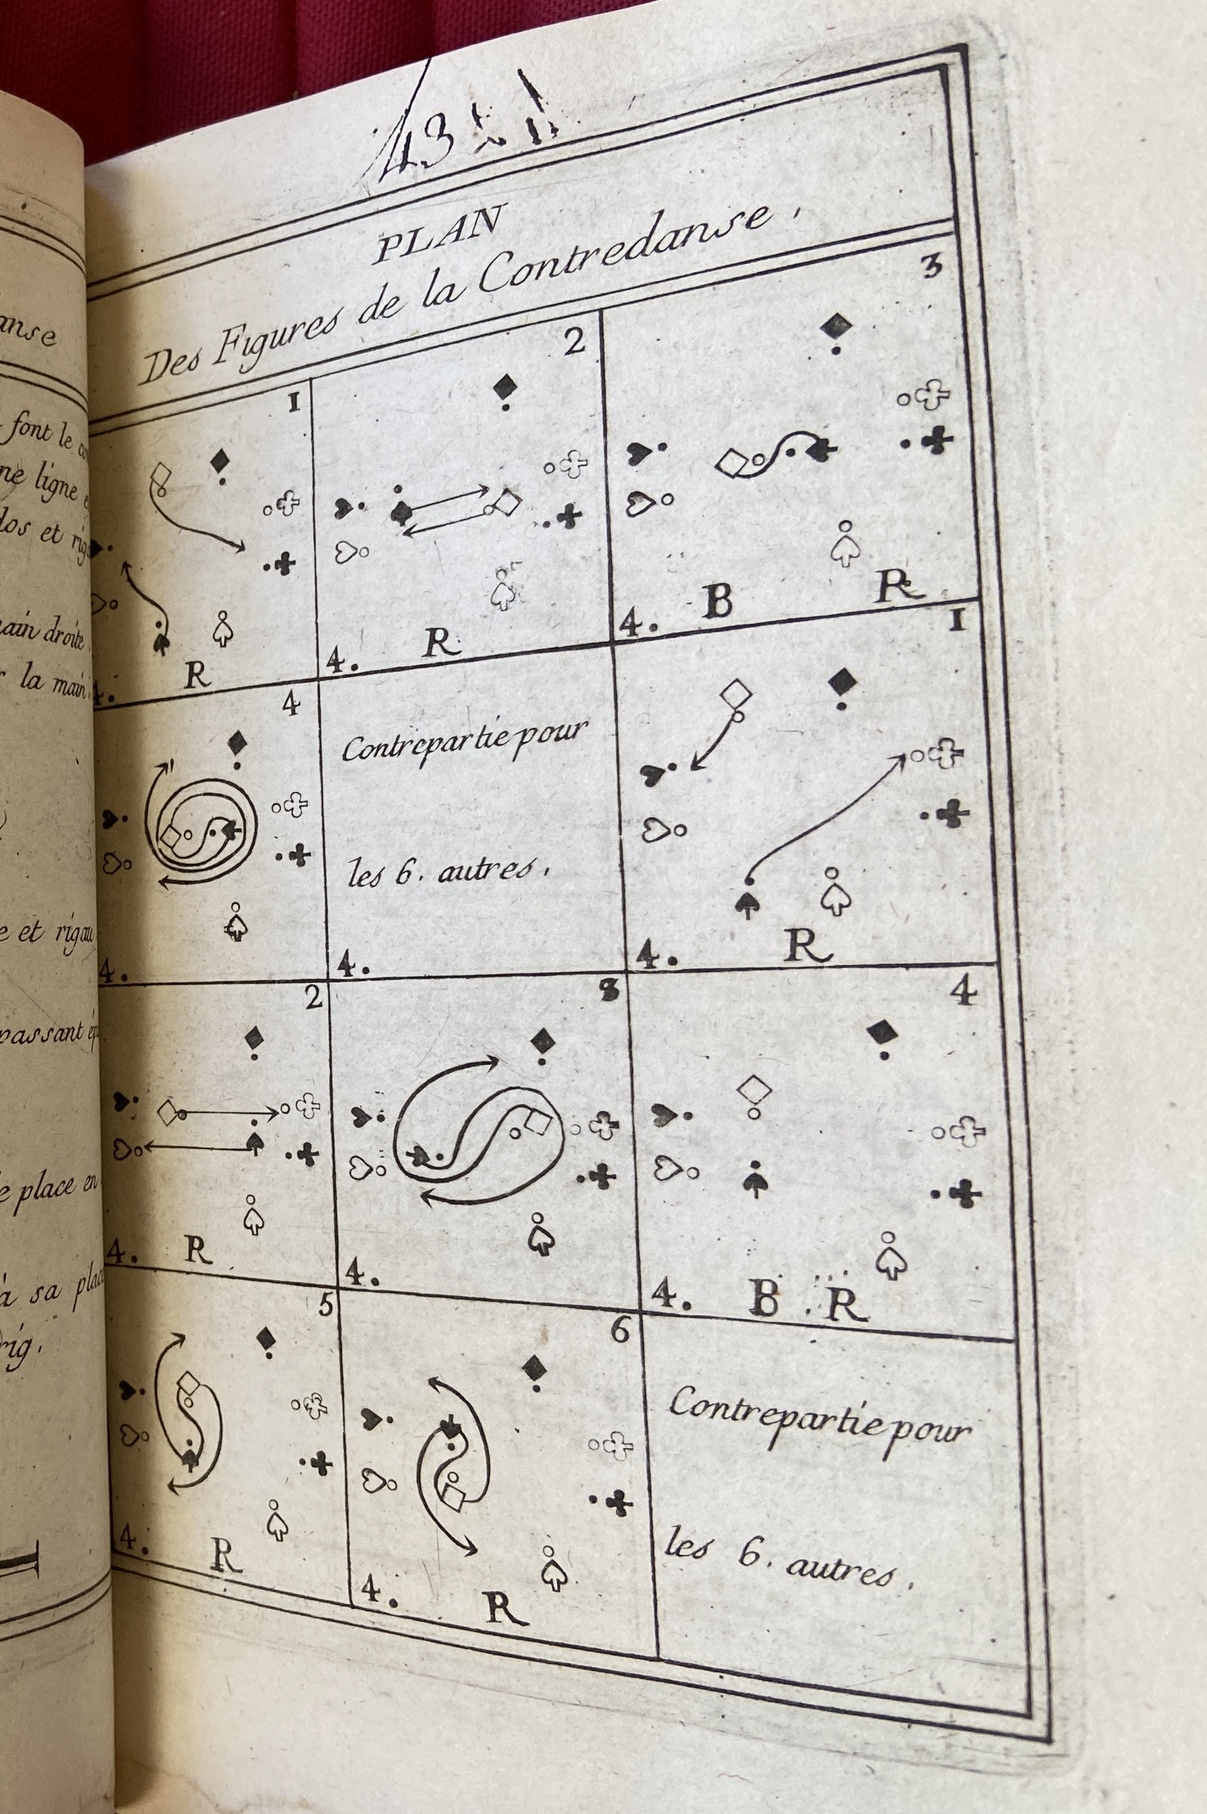 anse
font le
ne ligne
dos et rig
main droite
la main
e et rigau
passant
e place en
à sa place
rig.
43
PLAN
Des Figures de la Contredanse,
1
R
4.
2
4. R
3
4. B R
4
4.
Contrepartie pour
les 6. autres,
4.
1
4. R
2
4. R
3
4.
4
4. B R
5
4. R
6
4. R
Contrepartie pour
les 6. autres,